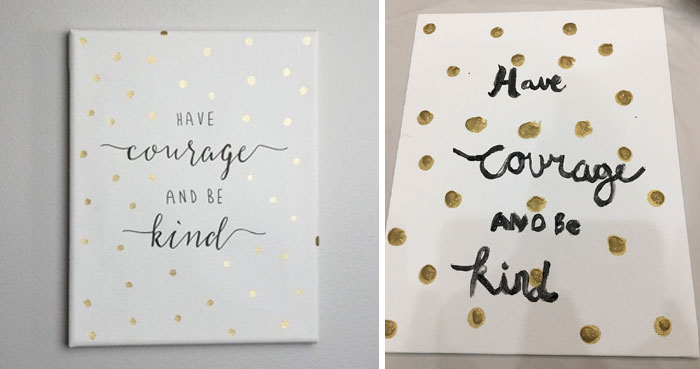 HAVE
courage
AND BE
kind
Have
courage
AND Be
kind